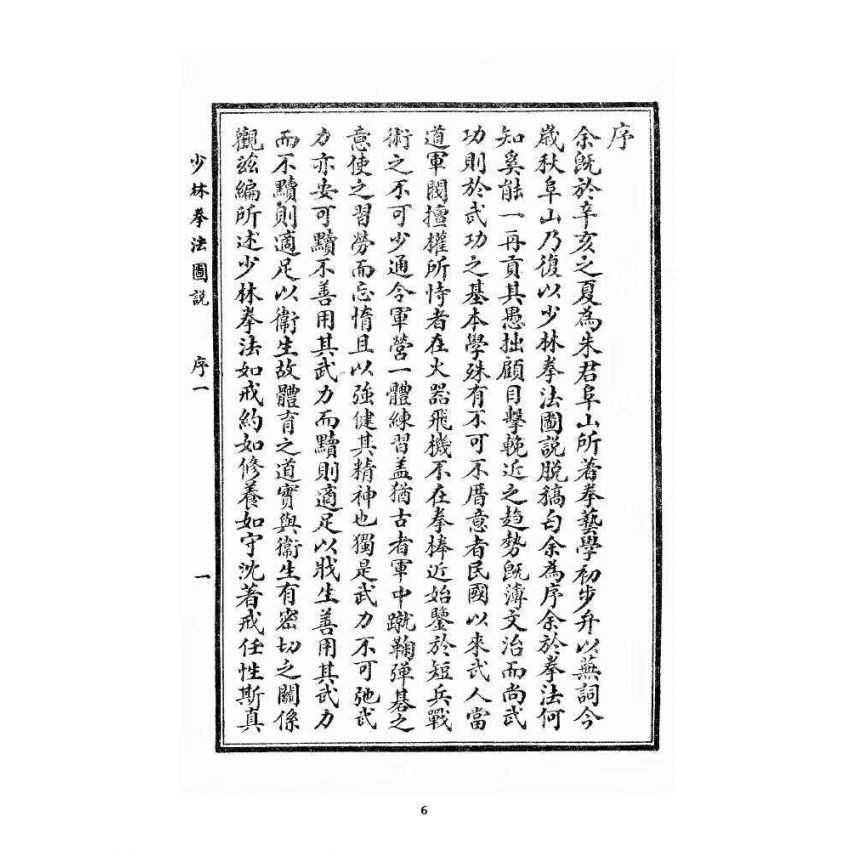 序
余旣於辛亥之夏為朱君阜山所著拳藝學初步弁以蕪詞今
歲秋阜山乃復以少林拳法圖說脫稿匄余為序余於拳法何
知奚能一再貢其愚拙顧目擊輓近之趨勢旣薄文治而尚武
功則於武功之基本學殊有不可不厝意者民國以來武人當
道軍閥擅權所恃者在火器飛機不在拳棒近始鑒於短兵戰
術之不可少通令軍營一體練習盖猶古者軍中蹴鞠彈碁之
意使之習勞而忘惰且以強健其精神也獨是武力不可弛武
力亦安可黷不善用其武力而黷則適足以戕生善用其武力
而不黷則適足以衞生故體育之道實與衞生有密切之關係
觀玆編所述少林拳法如戒約如修養如守沈著戒任性斯真
少林拳法圖說 序一 一
6